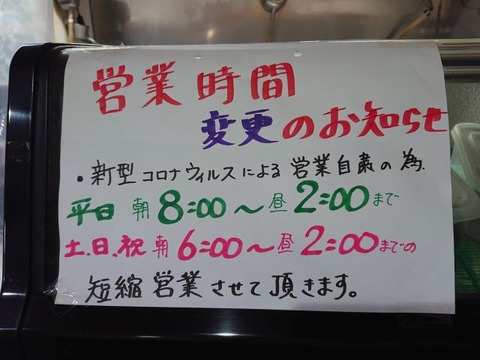 営業時間
変更のお知らせ
・新型コロナウィルスによる営業自粛の為.
平日 朝8:00～昼2:00まで
土.日.祝 朝6:00～昼2:00までの
短縮営業させて頂きます。